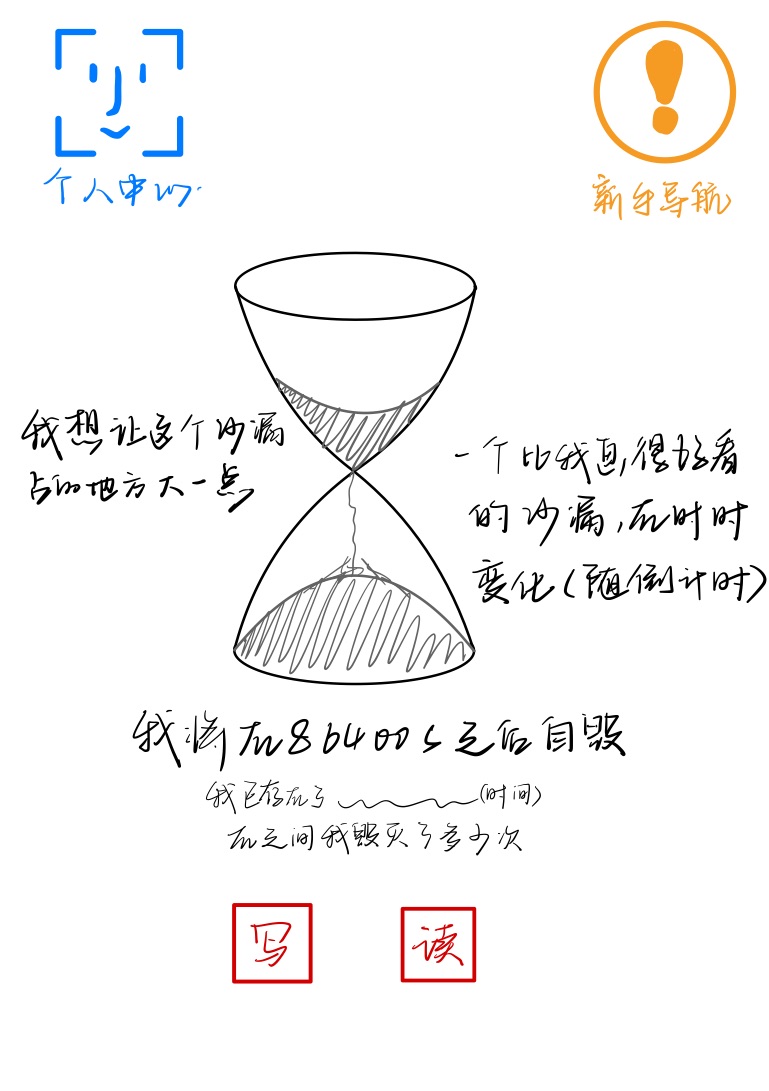 个人中心
新手导航
我想让这个沙漏
占的地方大一点
一个比我画,很好看
的沙漏,在时时
变化(随倒计时)
我将在86400s之后自毁
我已存在了 (时间)
在之间我毁灭了多少次
写 读